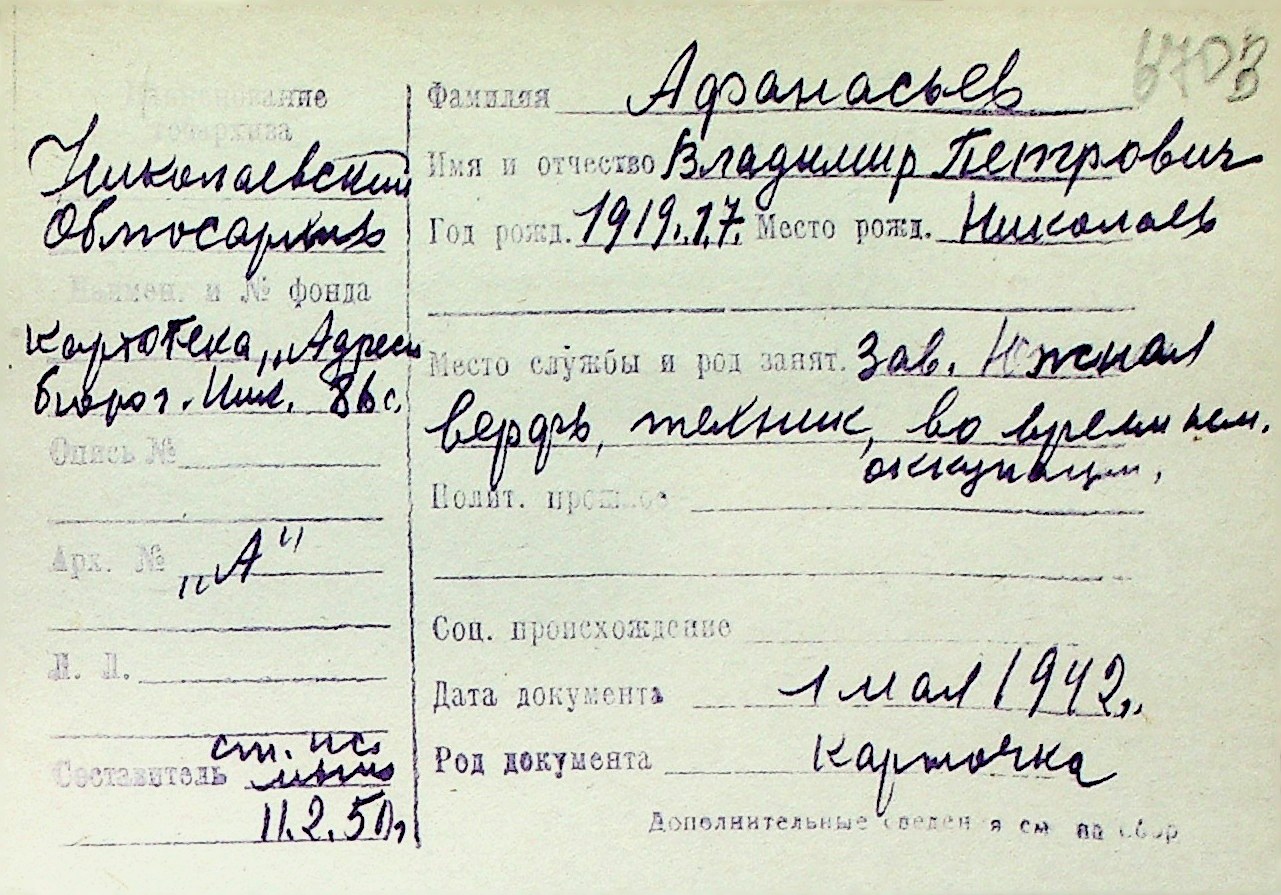 Наименование
госархива
Николаевский
Облгосархив
Наимен. и № фонда
картотека „Адресн
бюро г. Ник. 86 с.
Опись №
Арх. № „А"
Л. Л.
Составитель ст. н.с.
11.2.50 г.
6703
Фамилия Афанасьев
Имя и отчество Владимир Петрович
Год рожд. 1919.1.7. Место рожд. Николаев
Место службы и род занят. Зав. Южная
верфь, техник, во время нем.
оккупации.
Полит. прошлое
Соц. происхождение
Дата документа 1 мая 1942 г.
Род документа карточка
Дополнительные сведения см на обор